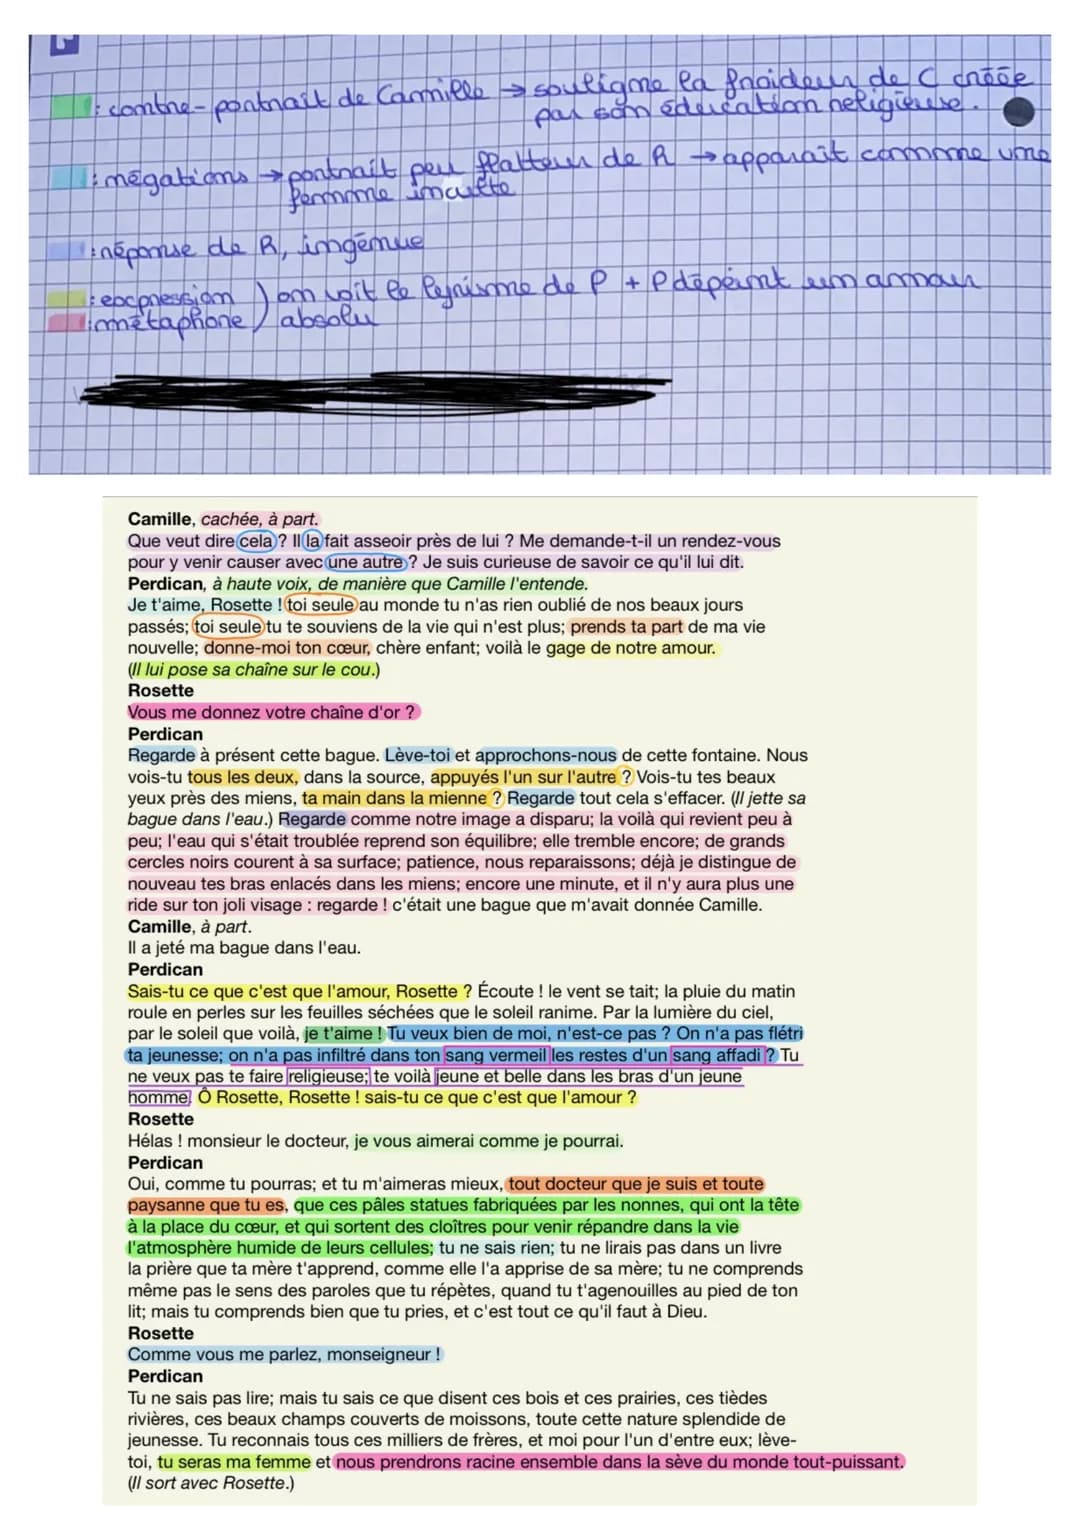 : contre-portrait de Camille → souligne la froideur de C créée
par son éducation religieuse.
: négations → portrait peu flatteur de R → apparaît comme une
femme inculte
: réponse de R, ingénue
: expression ) on voit le cynisme de P + P dépeint un amour
: métaphore ) absolu
Camille, cachée, à part.
Que veut dire cela ? Il la fait asseoir près de lui ? Me demande-t-il un rendez-vous
pour y venir causer avec une autre ? Je suis curieuse de savoir ce qu'il lui dit.
Perdican, à haute voix, de manière que Camille l'entende.
Je t'aime, Rosette ! toi seule au monde tu n'as rien oublié de nos beaux jours
passés; toi seule tu te souviens de la vie qui n'est plus; prends ta part de ma vie
nouvelle; donne-moi ton cœur, chère enfant; voilà le gage de notre amour.
(Il lui pose sa chaîne sur le cou.)
Rosette
Vous me donnez votre chaîne d'or ?
Perdican
Regarde à présent cette bague. Lève-toi et approchons-nous de cette fontaine. Nous
vois-tu tous les deux, dans la source, appuyés l'un sur l'autre ? Vois-tu tes beaux
yeux près des miens, ta main dans la mienne ? Regarde tout cela s'effacer. (Il jette sa
bague dans l'eau.) Regarde comme notre image a disparu; la voilà qui revient peu à
peu; l'eau qui s'était troublée reprend son équilibre; elle tremble encore; de grands
cercles noirs courent à sa surface; patience, nous reparaissons; déjà je distingue de
nouveau tes bras enlacés dans les miens; encore une minute, et il n'y aura plus une
ride sur ton joli visage : regarde ! c'était une bague que m'avait donnée Camille.
Camille, à part.
Il a jeté ma bague dans l'eau.
Perdican
Sais-tu ce que c'est que l'amour, Rosette ? Écoute ! le vent se tait; la pluie du matin
roule en perles sur les feuilles séchées que le soleil ranime. Par la lumière du ciel,
par le soleil que voilà, je t'aime ! Tu veux bien de moi, n'est-ce pas ? On n'a pas flétri
ta jeunesse; on n'a pas infiltré dans ton sang vermeil les restes d'un sang affadi ? Tu
ne veux pas te faire religieuse; te voilà jeune et belle dans les bras d'un jeune
homme. Ô Rosette, Rosette ! sais-tu ce que c'est que l'amour ?
Rosette
Hélas ! monsieur le docteur, je vous aimerai comme je pourrai.
Perdican
Oui, comme tu pourras; et tu m'aimeras mieux, tout docteur que je suis et toute
paysanne que tu es, que ces pâles statues fabriquées par les nonnes, qui ont la tête
à la place du cœur, et qui sortent des cloîtres pour venir répandre dans la vie
l'atmosphère humide de leurs cellules; tu ne sais rien; tu ne lirais pas dans un livre
la prière que ta mère t'apprend, comme elle l'a apprise de sa mère; tu ne comprends
même pas le sens des paroles que tu répètes, quand tu t'agenouilles au pied de ton
lit; mais tu comprends bien que tu pries, et c'est tout ce qu'il faut à Dieu.
Rosette
Comme vous me parlez, monseigneur !
Perdican
Tu ne sais pas lire; mais tu sais ce que disent ces bois et ces prairies, ces tièdes
rivières, ces beaux champs couverts de moissons, toute cette nature splendide de
jeunesse. Tu reconnais tous ces milliers de frères, et moi pour l'un d'entre eux; lève-
toi, tu seras ma femme et nous prendrons racine ensemble dans la sève du monde tout-puissant.
(Il sort avec Rosette.)